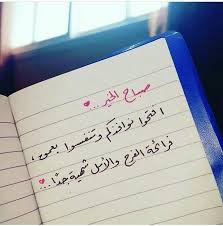 صباح الخير..♥
افتحوا نوافذكم وتنفسوا بعمق،
فرائحة الفرح والأمل شهية جدًا..♥